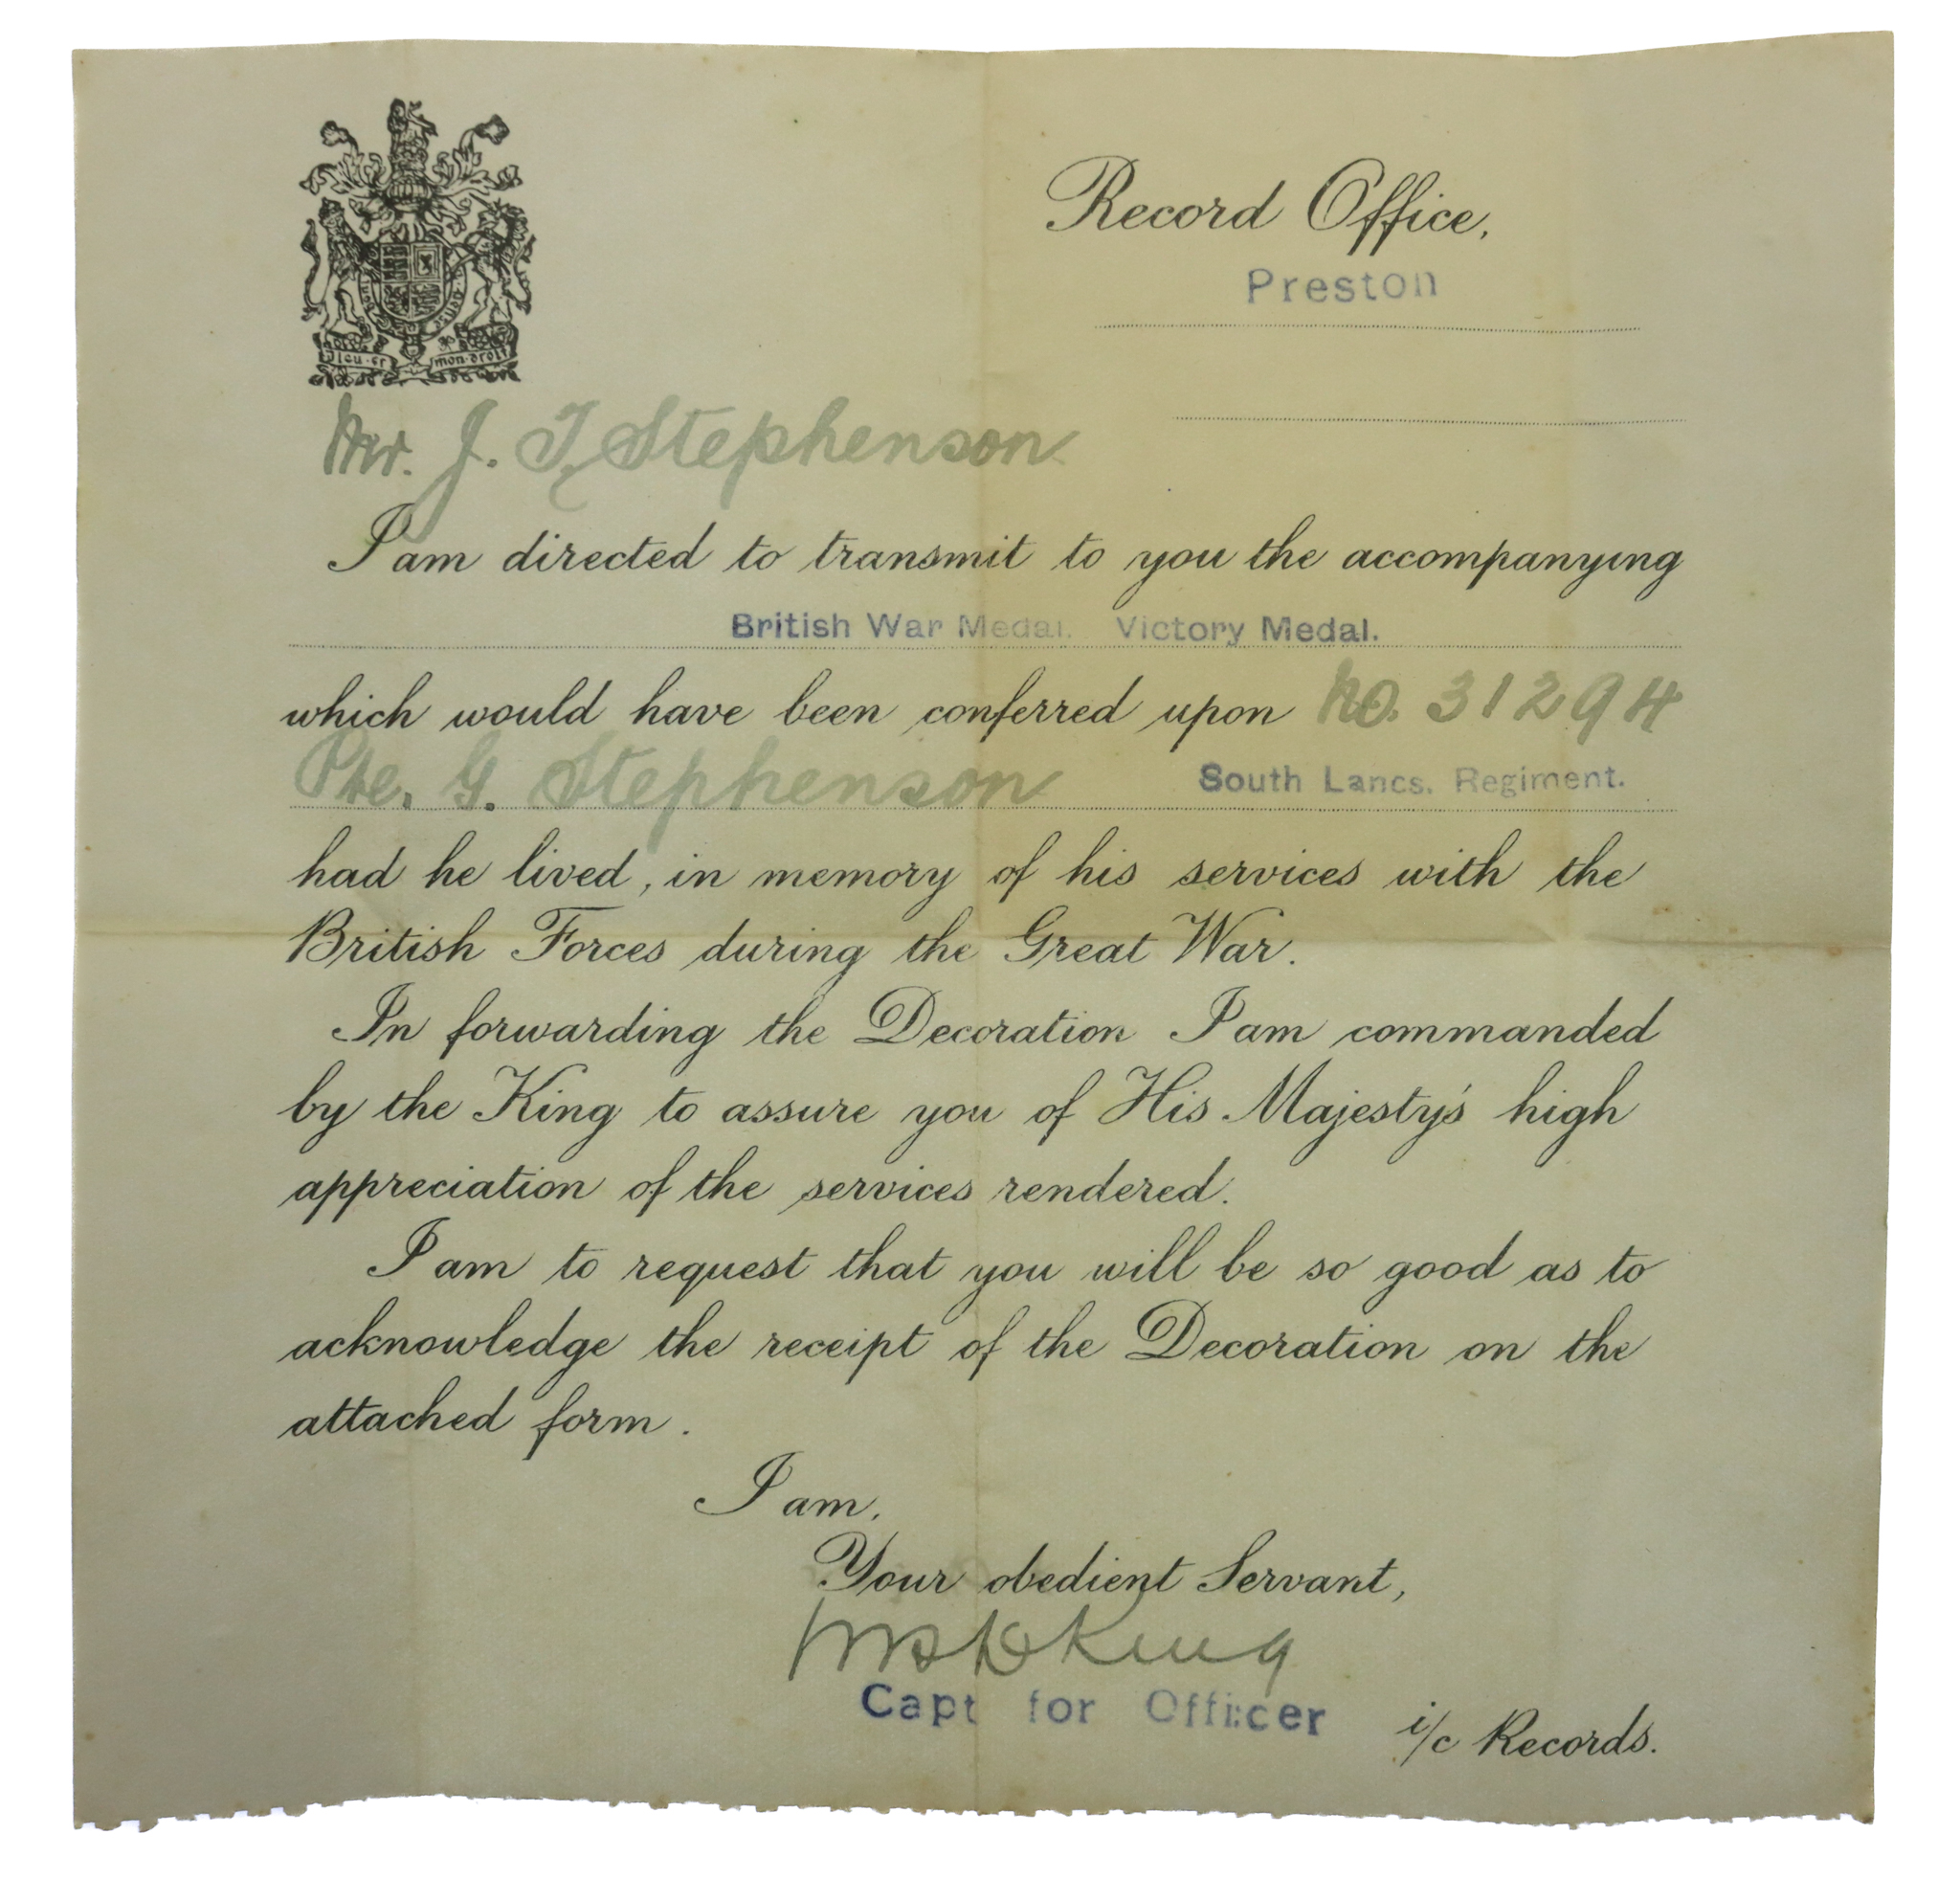 Record Office,
Preston
Dieu et mon droit
Mr. J. T. Stephenson
I am directed to transmit to you the accompanying
British War Medal. Victory Medal.
which would have been conferred upon No. 31294
Pte. G. Stephenson South Lancs. Regiment.
had he lived, in memory of his services with the
British Forces during the Great War.
In forwarding the Decoration I am commanded
by the King to assure you of His Majesty's high
appreciation of the services rendered.
I am to request that you will be so good as to
acknowledge the receipt of the Decoration on the
attached form.
I am,
Your obedient Servant,
King
Capt for Officer i/c Records.